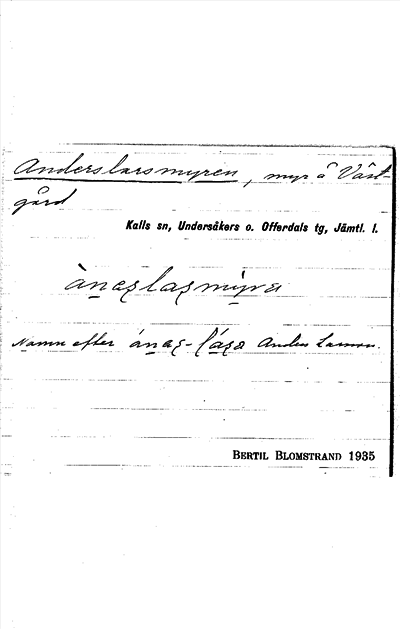 Anderslarsmyren, myr å Väst-
gård
Kalls sn, Undersåkers o. Offerdals tg, Jämtl. l.
Namn efter Anders Larsson.
BERTIL BLOMSTRAND 1935